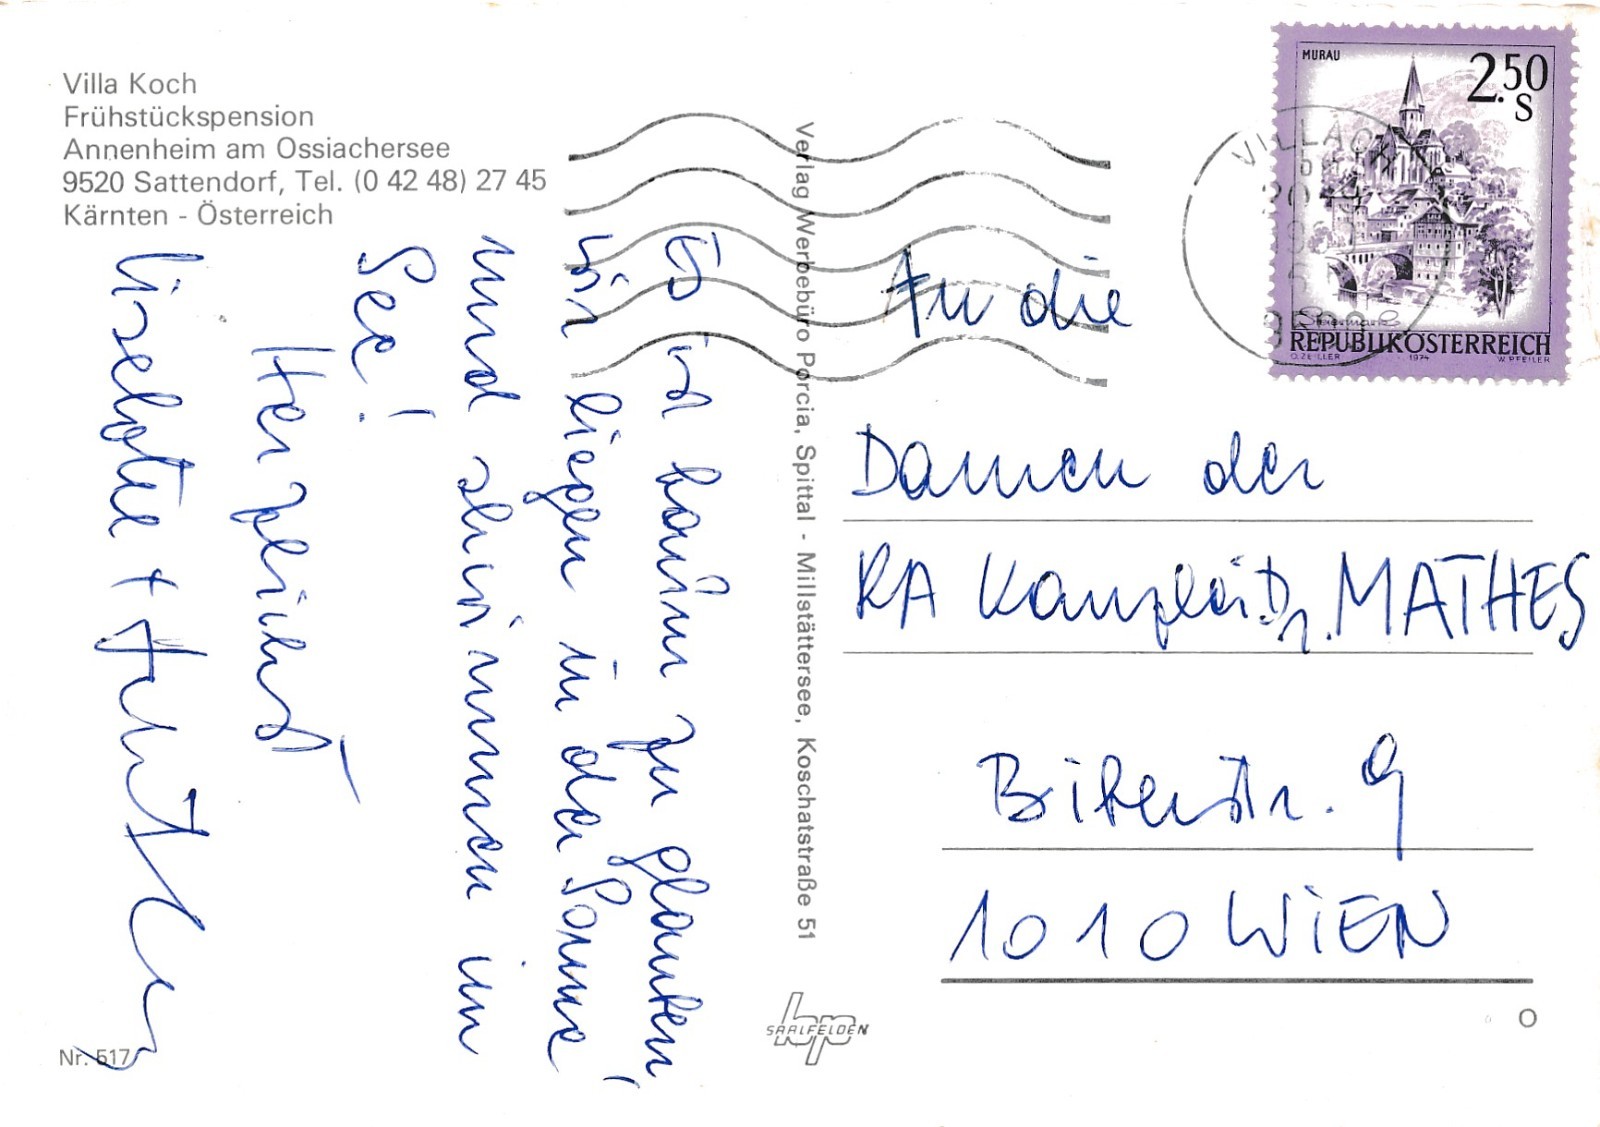 Villa Koch
Frühstückspension
Annenheim am Ossiachersee
9520 Sattendorf, Tel. (0 42 48) 27 45
Kärnten - Österreich
Es ist kaum zu glauben,
wir liegen in der Sonne
und schwimmen im
See!
Herzlichst
Liselotte +
Nr. 517
Verlag Werbebüro Porcia, Spittal - Millstättersee, Koschatstraße 51
SAALFELDEN
MURAU
2.50
S
Steiermark
REPUBLIK ÖSTERREICH
O. ZEILLER 1974 W. PFEILER
VILLACH
An die
Damen der
RA Kanzlei Dr. MATHES
Biberstr. 9
1010 WiEN
O